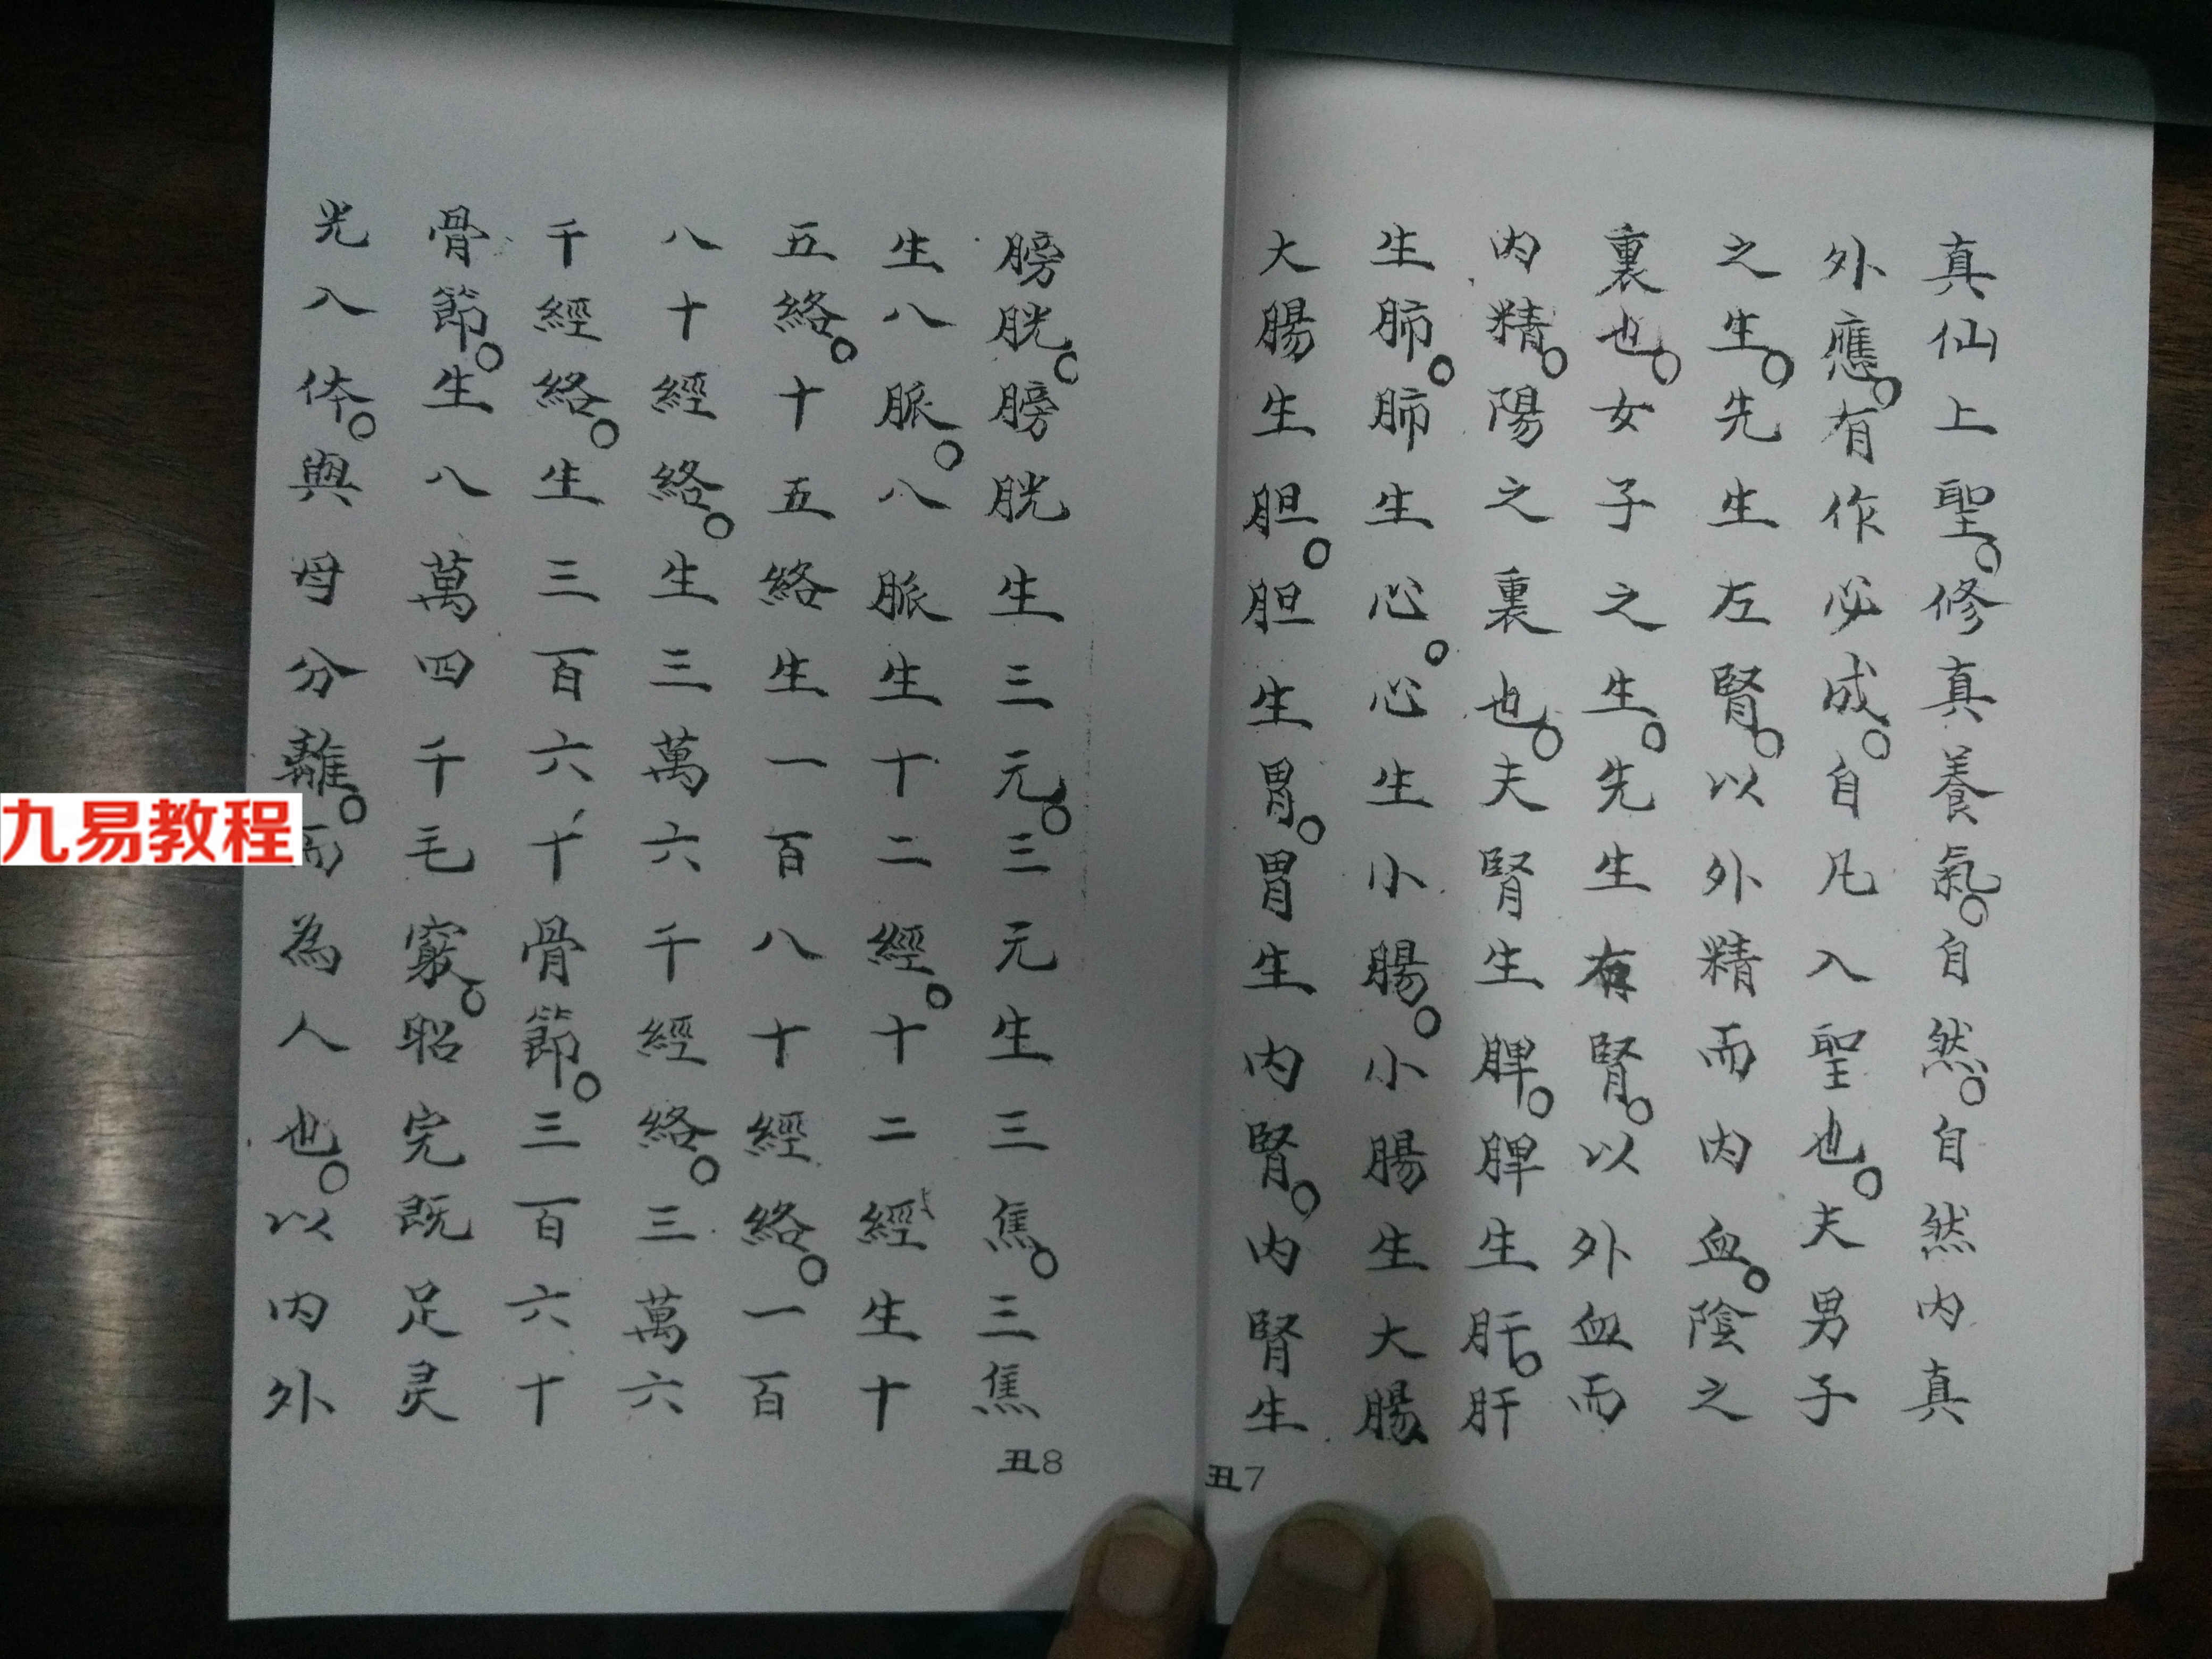 真仙上聖。修真養氣。自然。自然內真
外應。有作必成。自凡入聖也。夫男子
之生。先生左腎。以外精而内血。陰之
裏也。女子之生。先生右腎。以外血而
内精。陽之裏也。夫腎生脾。脾生肝。肝
生肺。肺生心。心生小腸。小腸生大腸
大腸生胆。胆生胃。胃生内腎。内腎生
丑7
膀胱。膀胱生三元。三元生三焦。三焦
生八脈。八脈生十二經。十二經生十
五絡。十五絡生一百八十經絡。一百
八十經絡。生三萬六千經絡。三萬六
千經絡。生三百六十骨節。三百六十
骨節。生八萬四千毛竅。昭完既足灵
光八体。與母分離。而為人也。以内外
丑8
九易教程